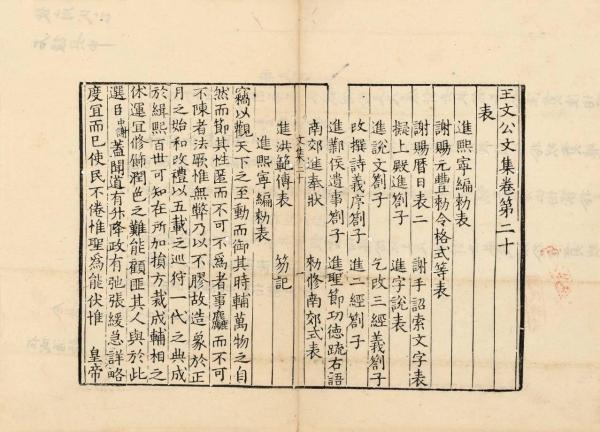 王文公文集卷第二十
表
進熙寧編勑表
謝賜元豐勑令格式等表
謝賜曆日表二 謝手詔索文字表
擬上殿進劄子 進字說表
進說文劄子 乞改三經義劄子
改撰詩義序劄子 進二經劄子
進鄴侯遺事劄子 進聖節功德疏右語
南郊進奉狀 勑修南郊式表
進洪範傳表 笏記
進熙寧編勑表
竊以觀天下之至動而御其時輔萬物之自
然而節其性匿而不可不為者事麤而不可
不陳者法歌惟無弊乃以不膠故造象於正
月之始和改禮以五載之巡狩一代之典成
於緝熙百世可知在所加損方裁成輔相之
休運宜修飾潤色之難能顧匪其人與於此
選臣中謝蓋聞道有升降政有弛張緩急詳略
度宜而已使民不倦惟聖為能伏惟 皇帝